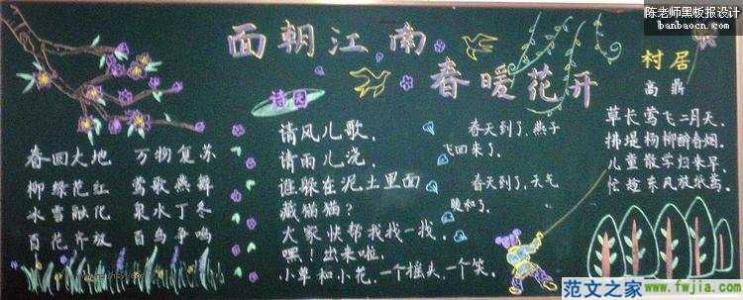 陈老师黑板报设计
banbaocn.com
面朝江南
春暖花开
春回大地 万物复苏
柳绿花红 莺歌燕舞
冰雪融化 泉水丁冬
百花齐放 百鸟争鸣
诗园
请风儿歌，
请雨儿浇，
谁躲在泥土里面
藏猫猫？
大家快帮我找一找，
嘿！出来啦，
小草和小花，一个摇头，一个笑。
春天到了，燕子
飞回来了。
春天到了，天气
暖和了。
村居
高鼎
草长莺飞二月天，
拂堤杨柳醉春烟。
儿童散学归来早，
忙趁东风放纸鸢。
范文之家
www.fwjia.com